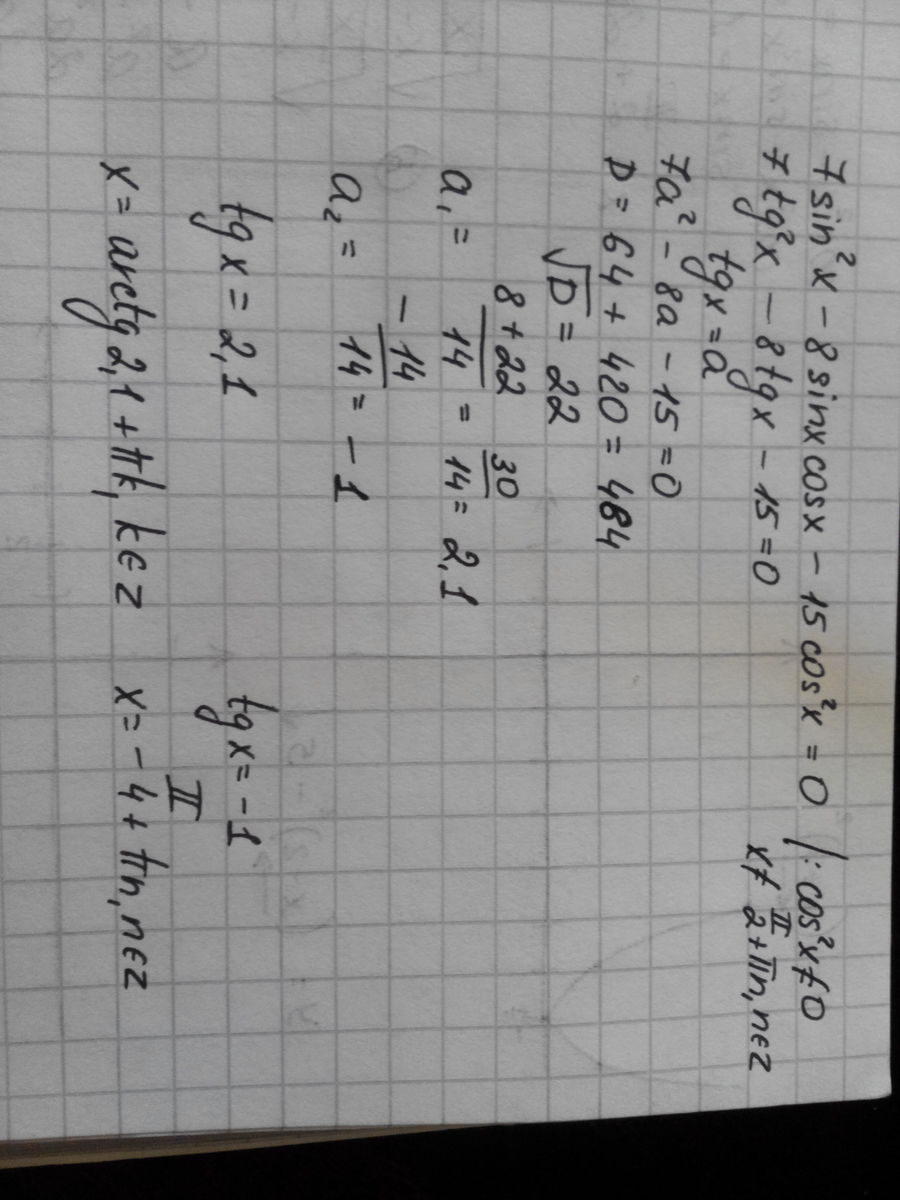 7 sin²x - 8 sinx cosx - 15 cos²x = 0 /: cos²x ≠ 0
7 tg²x - 8 tgx - 15 = 0 x ≠ π/2 + πn, n ∈ Z
tgx = a
7a² - 8a - 15 = 0
D = 64 + 420 = 484
√D = 22
a₁ = (8 + 22)/14 = 30/14 = 2,1
a₂ = -14/14 = -1
tgx = 2,1 tgx = -1
x = arctg 2,1 + πk, k ∈ Z x = -π/4 + πn, n ∈ Z